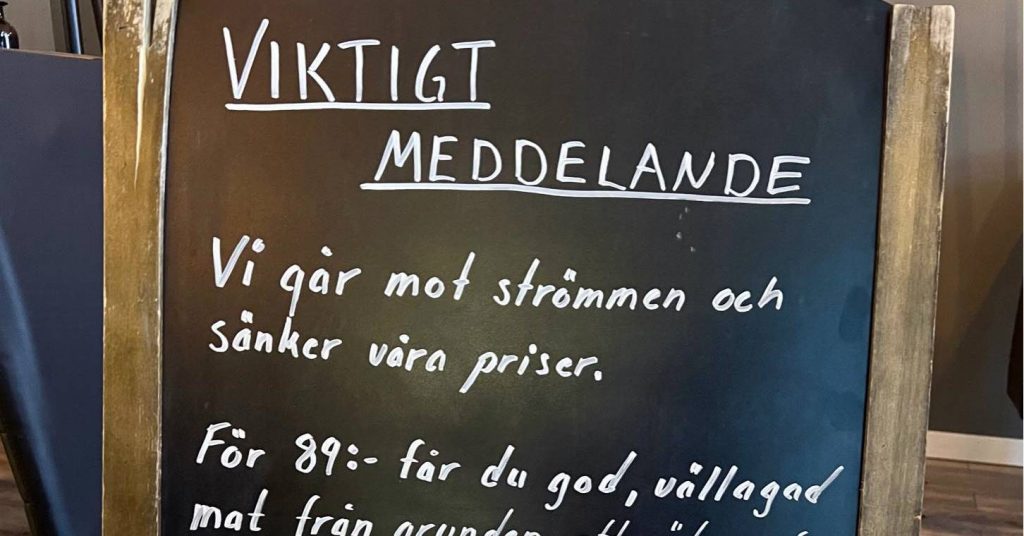 VIKTIGT
MEDDELANDE
Vi går mot strömmen och
sänker våra priser.
För 89:- får du god, vällagad
mat från grunden